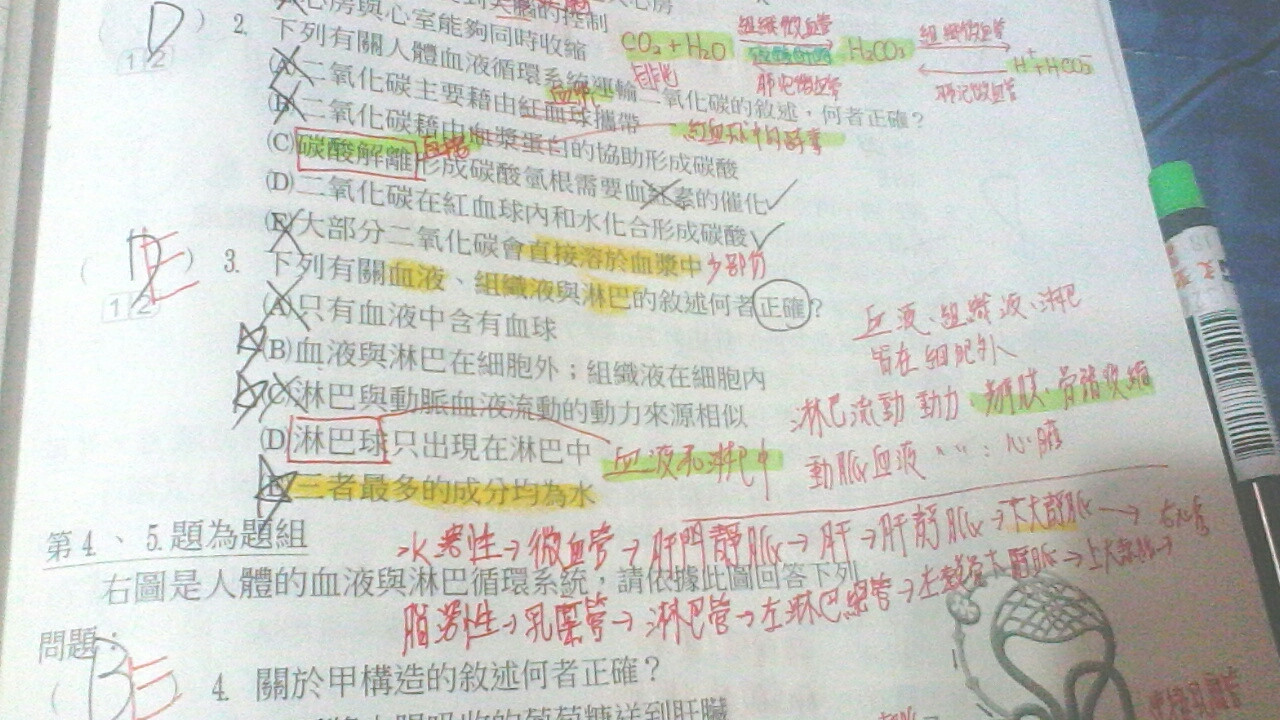 心房與心室能夠同時收縮
D ) 2. 下列有關人體血液循環系統運輸二氧化碳的敘述，何者正確？
12
CO2 + H2O 組織微血管 肺泡微血管 H2CO3 組織微血管 肺泡微血管 H+ + HCO3-
(A)二氧化碳主要藉由紅血球攜帶
血漿
(B)二氧化碳藉由血漿蛋白的協助形成碳酸
紅血球中的酵素
(C)碳酸解離形成碳酸氫根需要血紅素的催化
(D)二氧化碳在紅血球內和水化合形成碳酸
(E)大部分二氧化碳會直接溶於血漿中 少部份
( E ) 3. 下列有關血液、組織液與淋巴的敘述何者正確?
12
(A)只有血液中含有血球
血液、組織液、淋巴
皆在細胞外
(B)血液與淋巴在細胞外；組織液在細胞內
(C)淋巴與動脈血液流動的動力來源相似
淋巴流動動力
(D)淋巴球只出現在淋巴中 血液和淋巴中
動脈血液 〃 〃：心臟
(E)三者最多的成分均為水
第4、5.題為題組
水溶性→微血管→肝門靜脈→肝→肝靜脈→下大靜脈→
右圖是人體的血液與淋巴循環系統，請依據此圖回答下列
脂溶性→乳糜管→淋巴管→左淋巴總管→
問題：
( E ) 4. 關於甲構造的敘述何者正確？